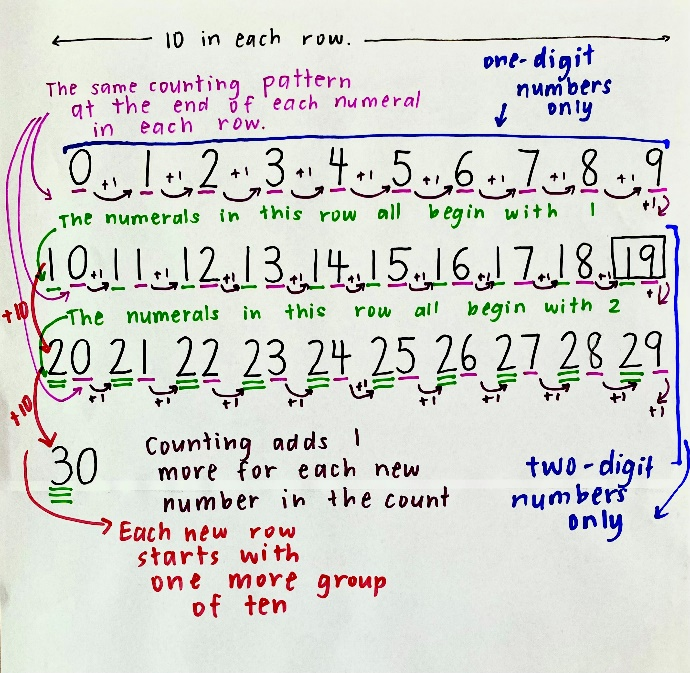 10 in each row.
one-digit
numbers
only
The same counting pattern
at the end of each numeral
in each row.
0 +1 1 +1 2 +1 3 +1 4 +1 5 +1 6 +1 7 +1 8 +1 9
+1
The numerals in this row all begin with 1
10 +1 11 +1 12 +1 13 +1 14 +1 15 +1 16 +1 17 +1 18 +1 19
+1
+10
The numerals in this row all begin with 2
20 21 22 23 24 25 26 27 28 29
+1 +1 +1 +1 +1 +1 +1 +1 +1 +1
+10
30
Counting adds 1
more for each new
number in the count
two-digit
numbers
only
Each new row
starts with
one more group
of ten